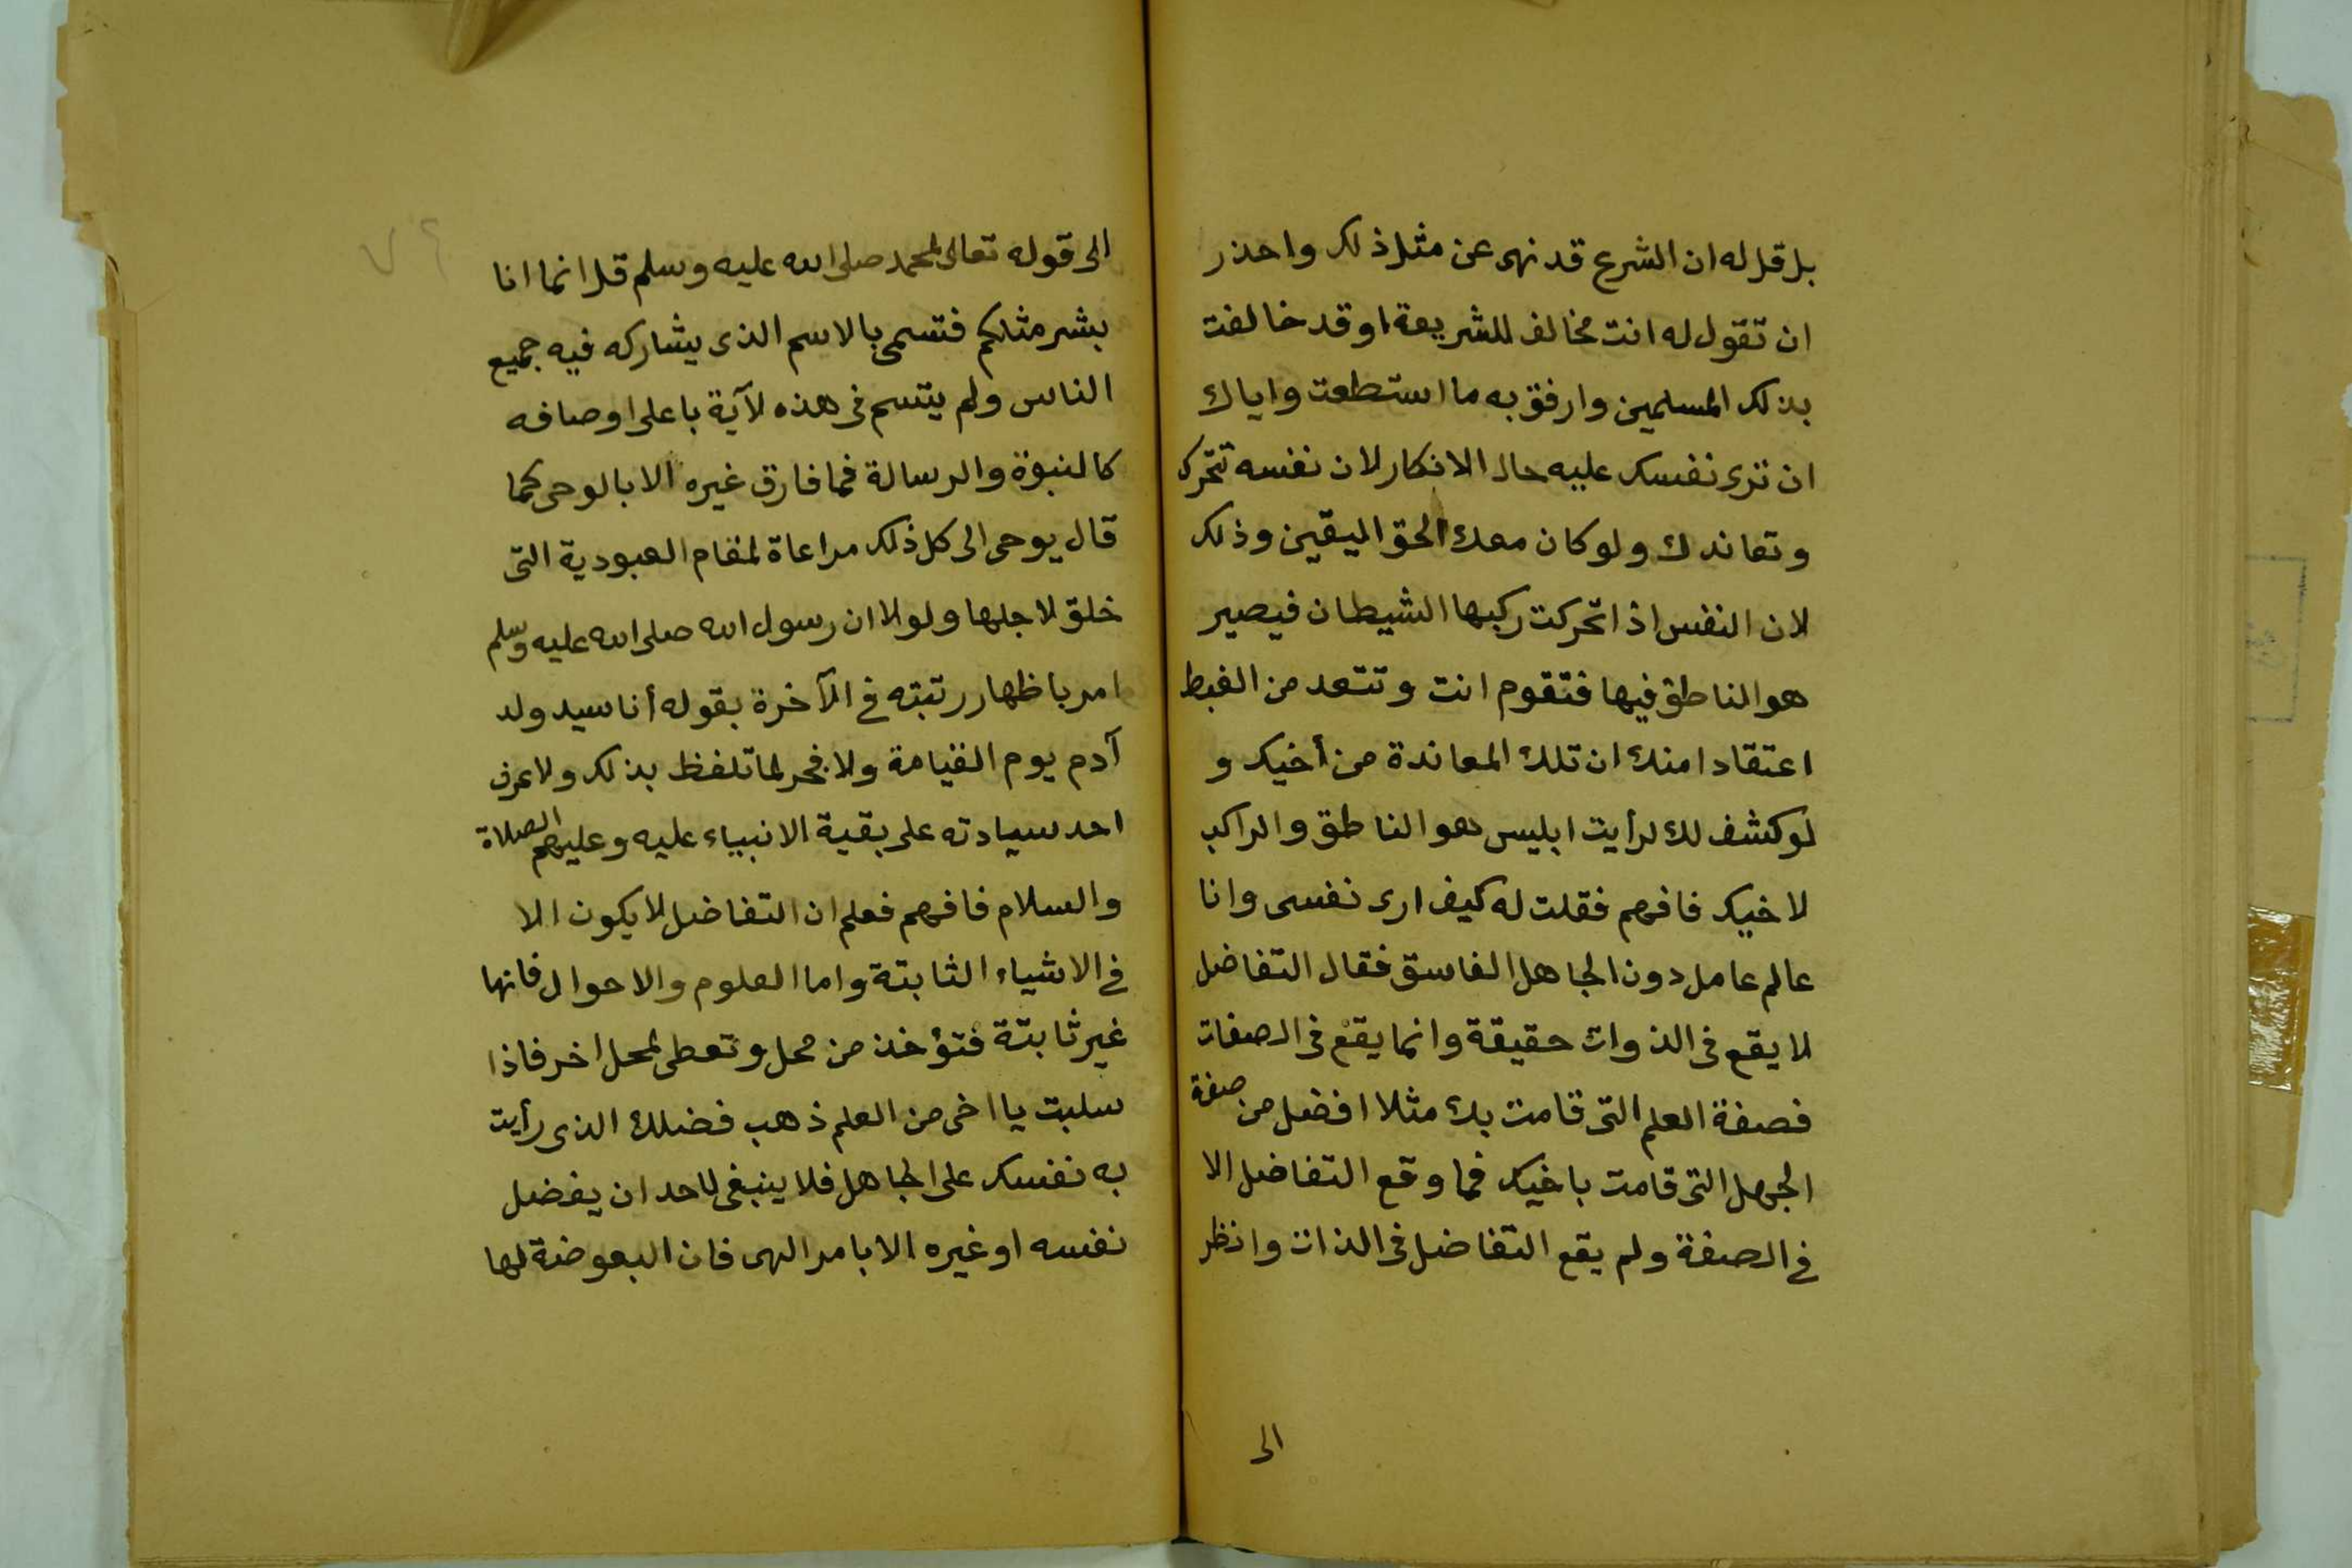 بل قل له ان الشرع قد نهى عن مثل ذلك واحذر
ان تقول له انت مخالف للشريعة او قد خالفت
بذلك المسلمين وارفق به ما استطعت واياك
ان ترى نفسك عليه حال الانكار لان نفسه تتحرك
وتعاندك ولو كان معك الحق اليقين وذلك
لان النفس اذا تحركت ركبها الشيطان فيصير
هو الناطق فيها فتقوم انت وتتعد من الغيظ
اعتقادا منك ان تلك المعاندة من أخيك و
لو كشف لك لرأيت ابليس هو الناطق والراكب
لاخيك فافهم فقلت له كيف ارى نفسى وانا
عالم عامل دون الجاهل الفاسق فقال التفاضل
لا يقع فى الذوات حقيقة وانما يقع فى الصفات
فصفة العلم التى قامت بك مثلا افضل من صفة
الجهل التى قامت باخيك فما وقع التفاضل الا
فى الصفة ولم يقع التفاضل فى الذات وانظر
الى
٧٤
الى قوله تعالى لمحمد صلى الله عليه وسلم قل انما انا
بشر مثلكم فتسمى بالاسم الذى يشاركه فيه جميع
الناس ولم يتسم فى هذه لآية باعلى اوصافه
كالنبوة والرسالة فما فارق غيره الا بالوحى كما
قال يوحى الى كل ذلك مراعاة لمقام العبودية التى
خلق لاجلها ولولا ان رسول الله صلى الله عليه وسلم
امر باظهار رتبته فى الآخرة بقوله أنا سيد ولد
آدم يوم القيامة ولا فخر لما تلفظ بذلك ولا عرف
احد سيادته على بقية الانبياء عليه وعليهم الصلاة
والسلام فافهم فعلم ان التفاضل لا يكون الا
فى الاشياء الثابتة واما العلوم والاحوال فانها
غير ثابتة فتؤخذ من محل وتعطى لمحل اخر فاذا
سلبت يا اخى من العلم ذهب فضلك الذى رأيت
به نفسك على الجاهل فلا ينبغى لاحد ان يفضل
نفسه او غيره الا بامر الهى فان البعوضة لها